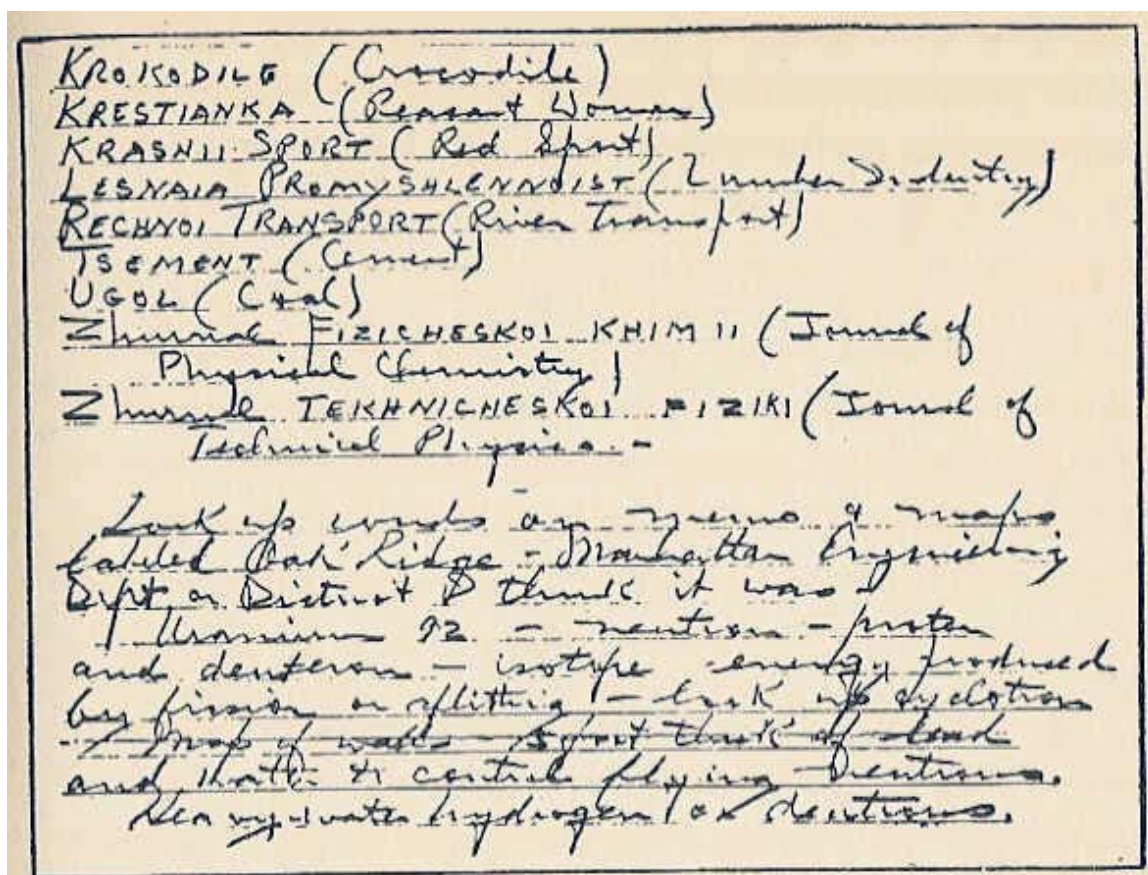 KROKODILE (Crocodile)
KRESTIANKA (Peasant Woman)
KRASNII SPORT (Red Sport)
LESNAIA PROMYSHLENNOIST (Lumber Industry)
RECHNOI TRANSPORT (River Transport)
TSEMENT (Cement)
UGOL (Coal)
Zhurnal FIZICHESKOI KHIMII (Journal of
Physical Chemistry)
Zhurnal TEKHNICHESKOI FIZIKI (Journal of
Technical Physics. -
Look up words on memo & maps
labled Oak Ridge - Manhattan Engineering
Dept. or District I think it was
Uranium 92 - neutron - proton
and deuteron - isotope - energy produced
by fission or splitting - look up cyclotron
- Map of walls 5 foot thick of lead
and to control flying neutrons.
Heavy-water hydrogen or deutrons.